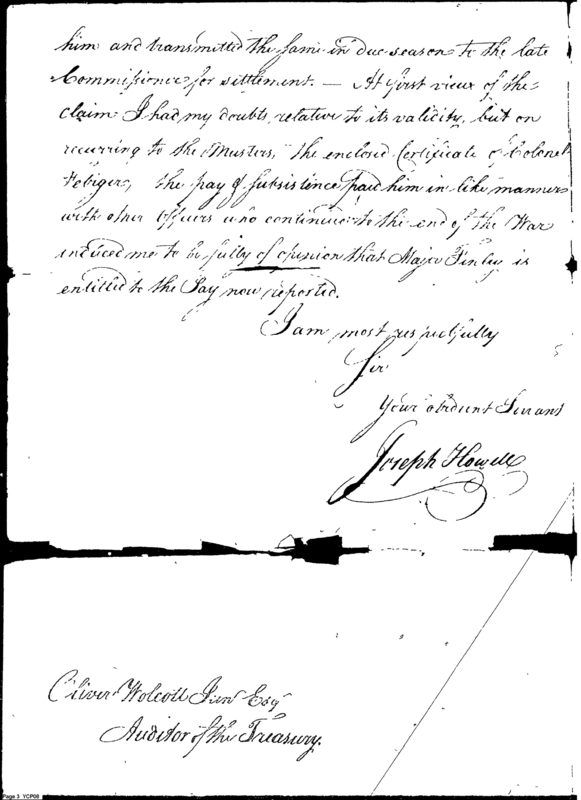 him and transmitted the same in due season to the late
Commissioner for settlement. — At first view of the
claim I had my doubts, relative to its validity, but on
recurring to the Musters, the enclosed Certificate of Colonel
Febiger, the pay & subsistence paid him in like manner
with other Officers who continued to the end of the War
induced me to be fully of opinion that Major Finley is
entitled to the Pay now reported.
I am most respectfully
Sir
Your obedient Servant
Joseph Howell
Oliver Wolcott Junr Esqr
Auditor of the Treasury.
Page 3 YCP08